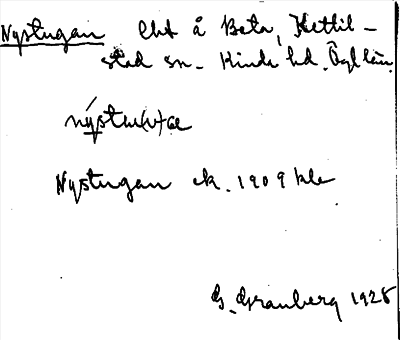 Nystugan lht å Beta, Kettil-
stad sn. Kinda hd. Ögl län.
nýstu(v)æ
Nystugan ek. 1909 kle
G. Granberg 1928